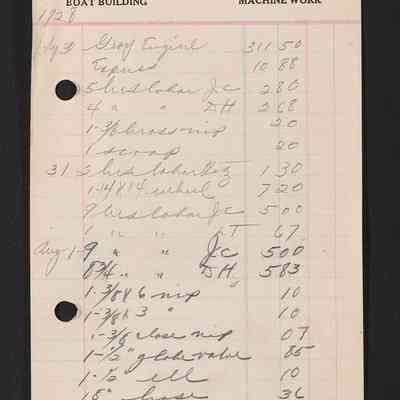 BOAT BUILDING MACHINE WORK
1928
July 30 Gray Engine 311 50
Express 10 88
5 hrs labor JC 2 80
4 " " DH 2 68
1-3/8 brass nip 20
1 scoop 20
31 2 hrs labor 1 30
1-14X14 wheel 7 20
9 hrs labor JC 5 00
1 " " T 67
Aug 1-9 " " JC 5 00
8 3/4 " " DH 5 83
1-3/8 X 6 nip 10
1-3/8 X 3 " 10
1-3/8 close nip 07
1-1/2" globe valve 85
1-1/2 ell 10
18" hose 36